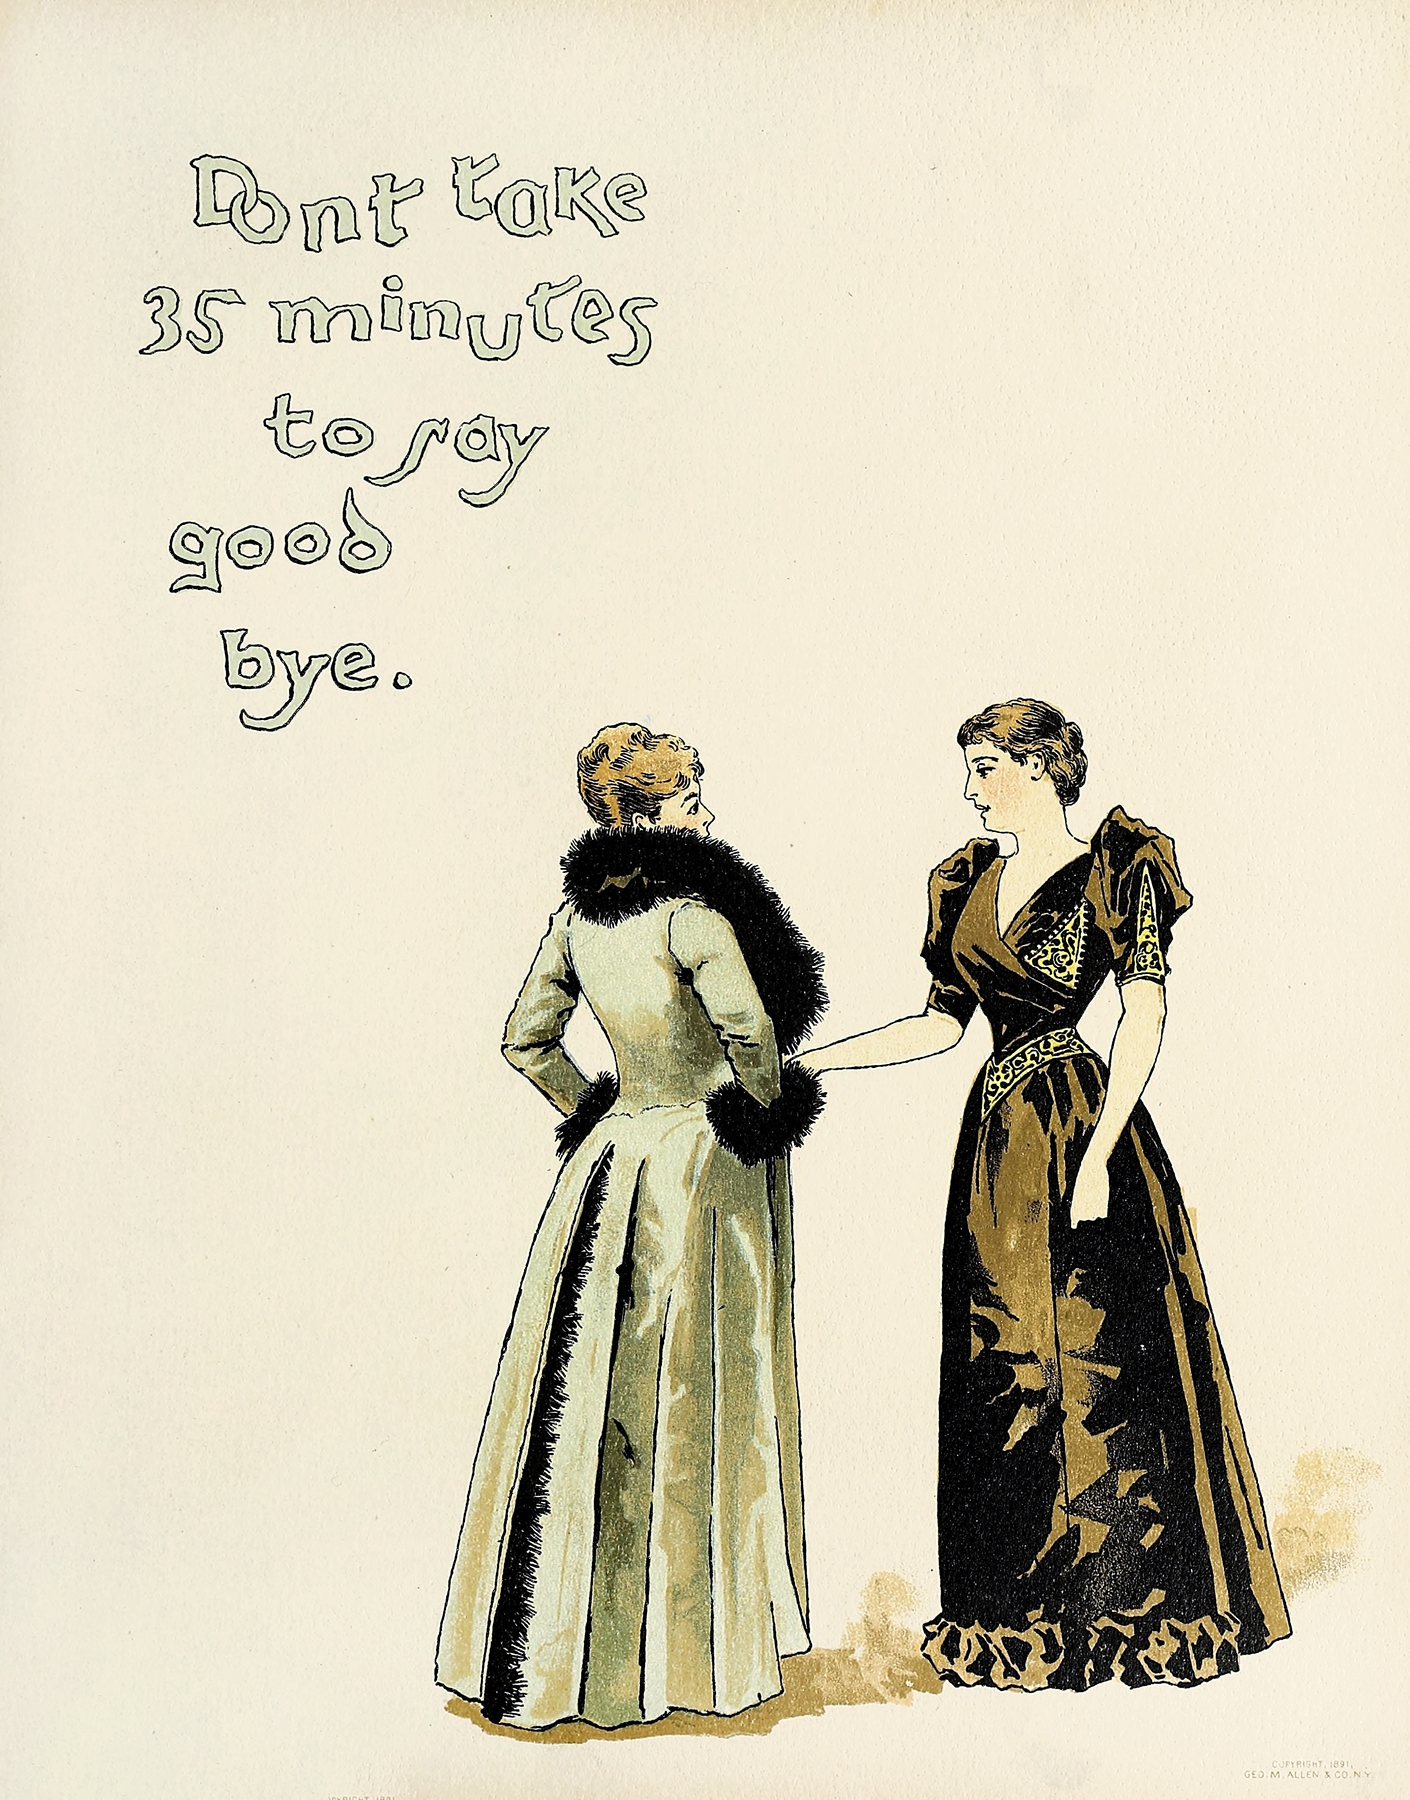 Dont take
35 minutes
to say
good
bye.
COPYRIGHT, 1891,
GEO. M. ALLEN & CO. N.Y.